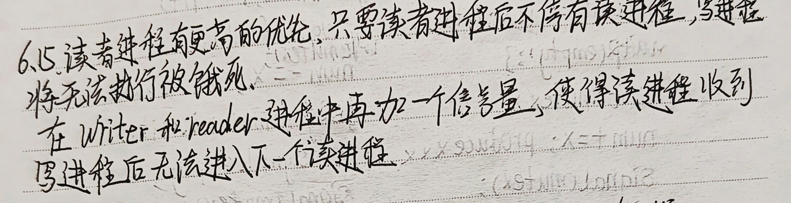 6.15.读者进程有更高的优先,只要读者进程后不停有读进程,写进程
将无法执行被饿死、
在 writer 和 reader 进程中再加一个信号量,使得读进程收到
写进程后无法进入下一个读进程